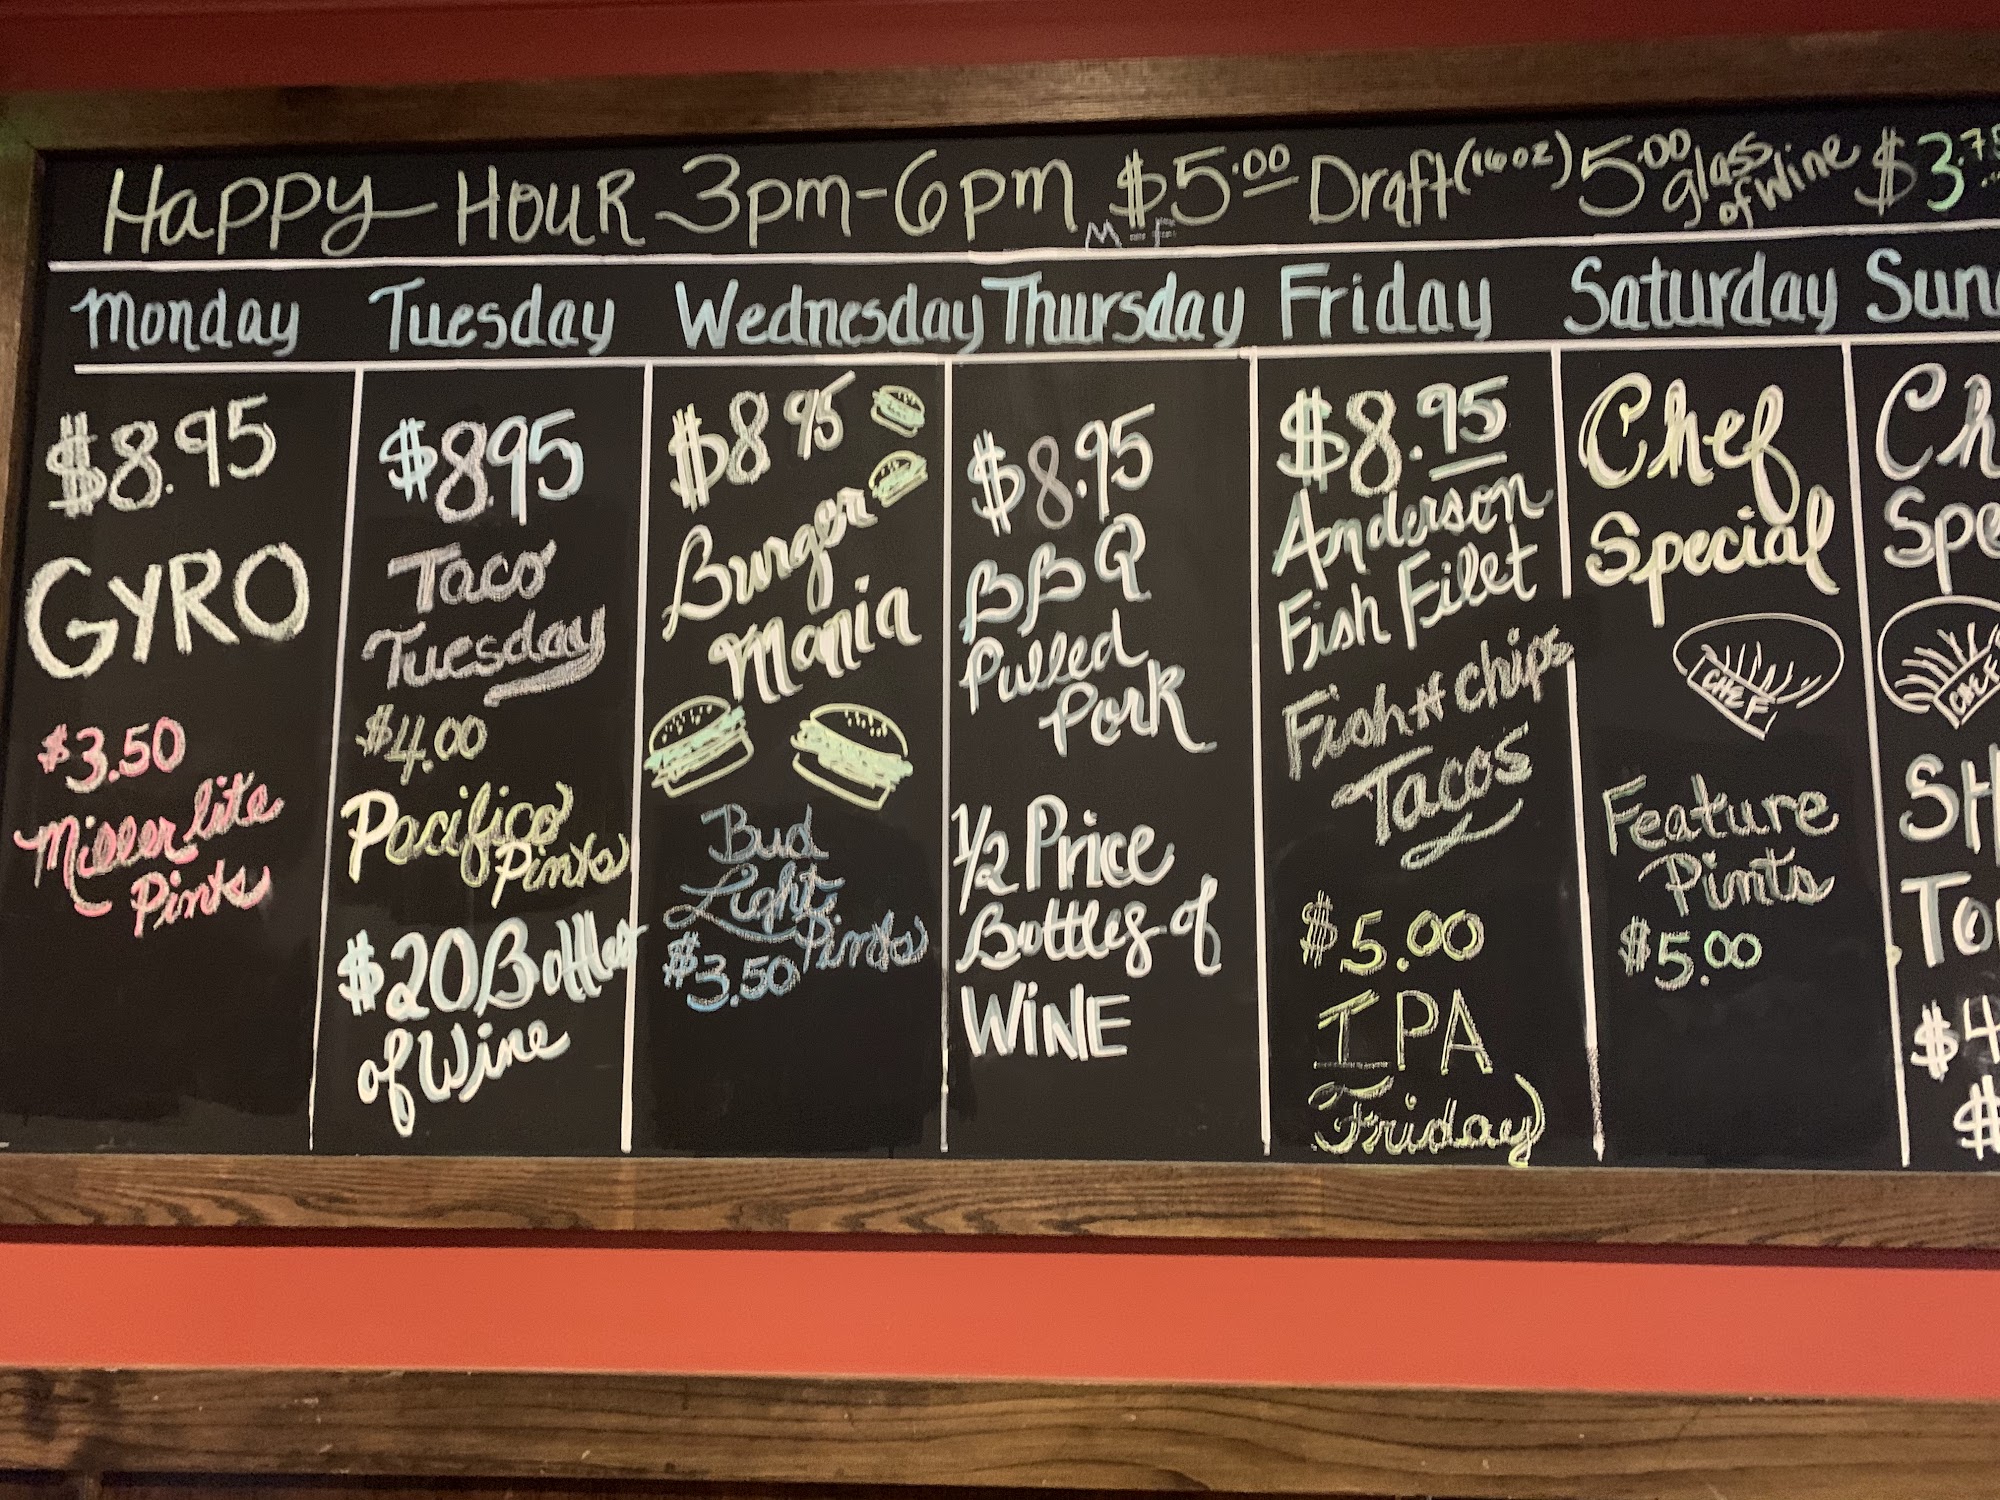 Happy HOUR 3pm-6pm $5.00 Draft (16oz) 5.00 glass of Wine $3.75
M-F
Monday Tuesday Wednesday Thursday Friday Saturday Sun
$8.95
GYRO
$3.50
Miller lite
Pints
$8.95
Taco
Tuesday
$4.00
Pacifico
Pints
$20 Bottles
of Wine
$8.95
Burger
Mania
Bud
Light
Pints
$3.50
$8.95
BBQ
Pulled
Pork
1/2 Price
Bottles of
WiNE
$8.95
Anderson
Fish Filet
Fish + Chips
Tacos
$5.00
IPA
Friday
Chef
Special
CHEF
Feature
Pints
$5.00
Ch
Spe
CHEF
SH
To
$4
$